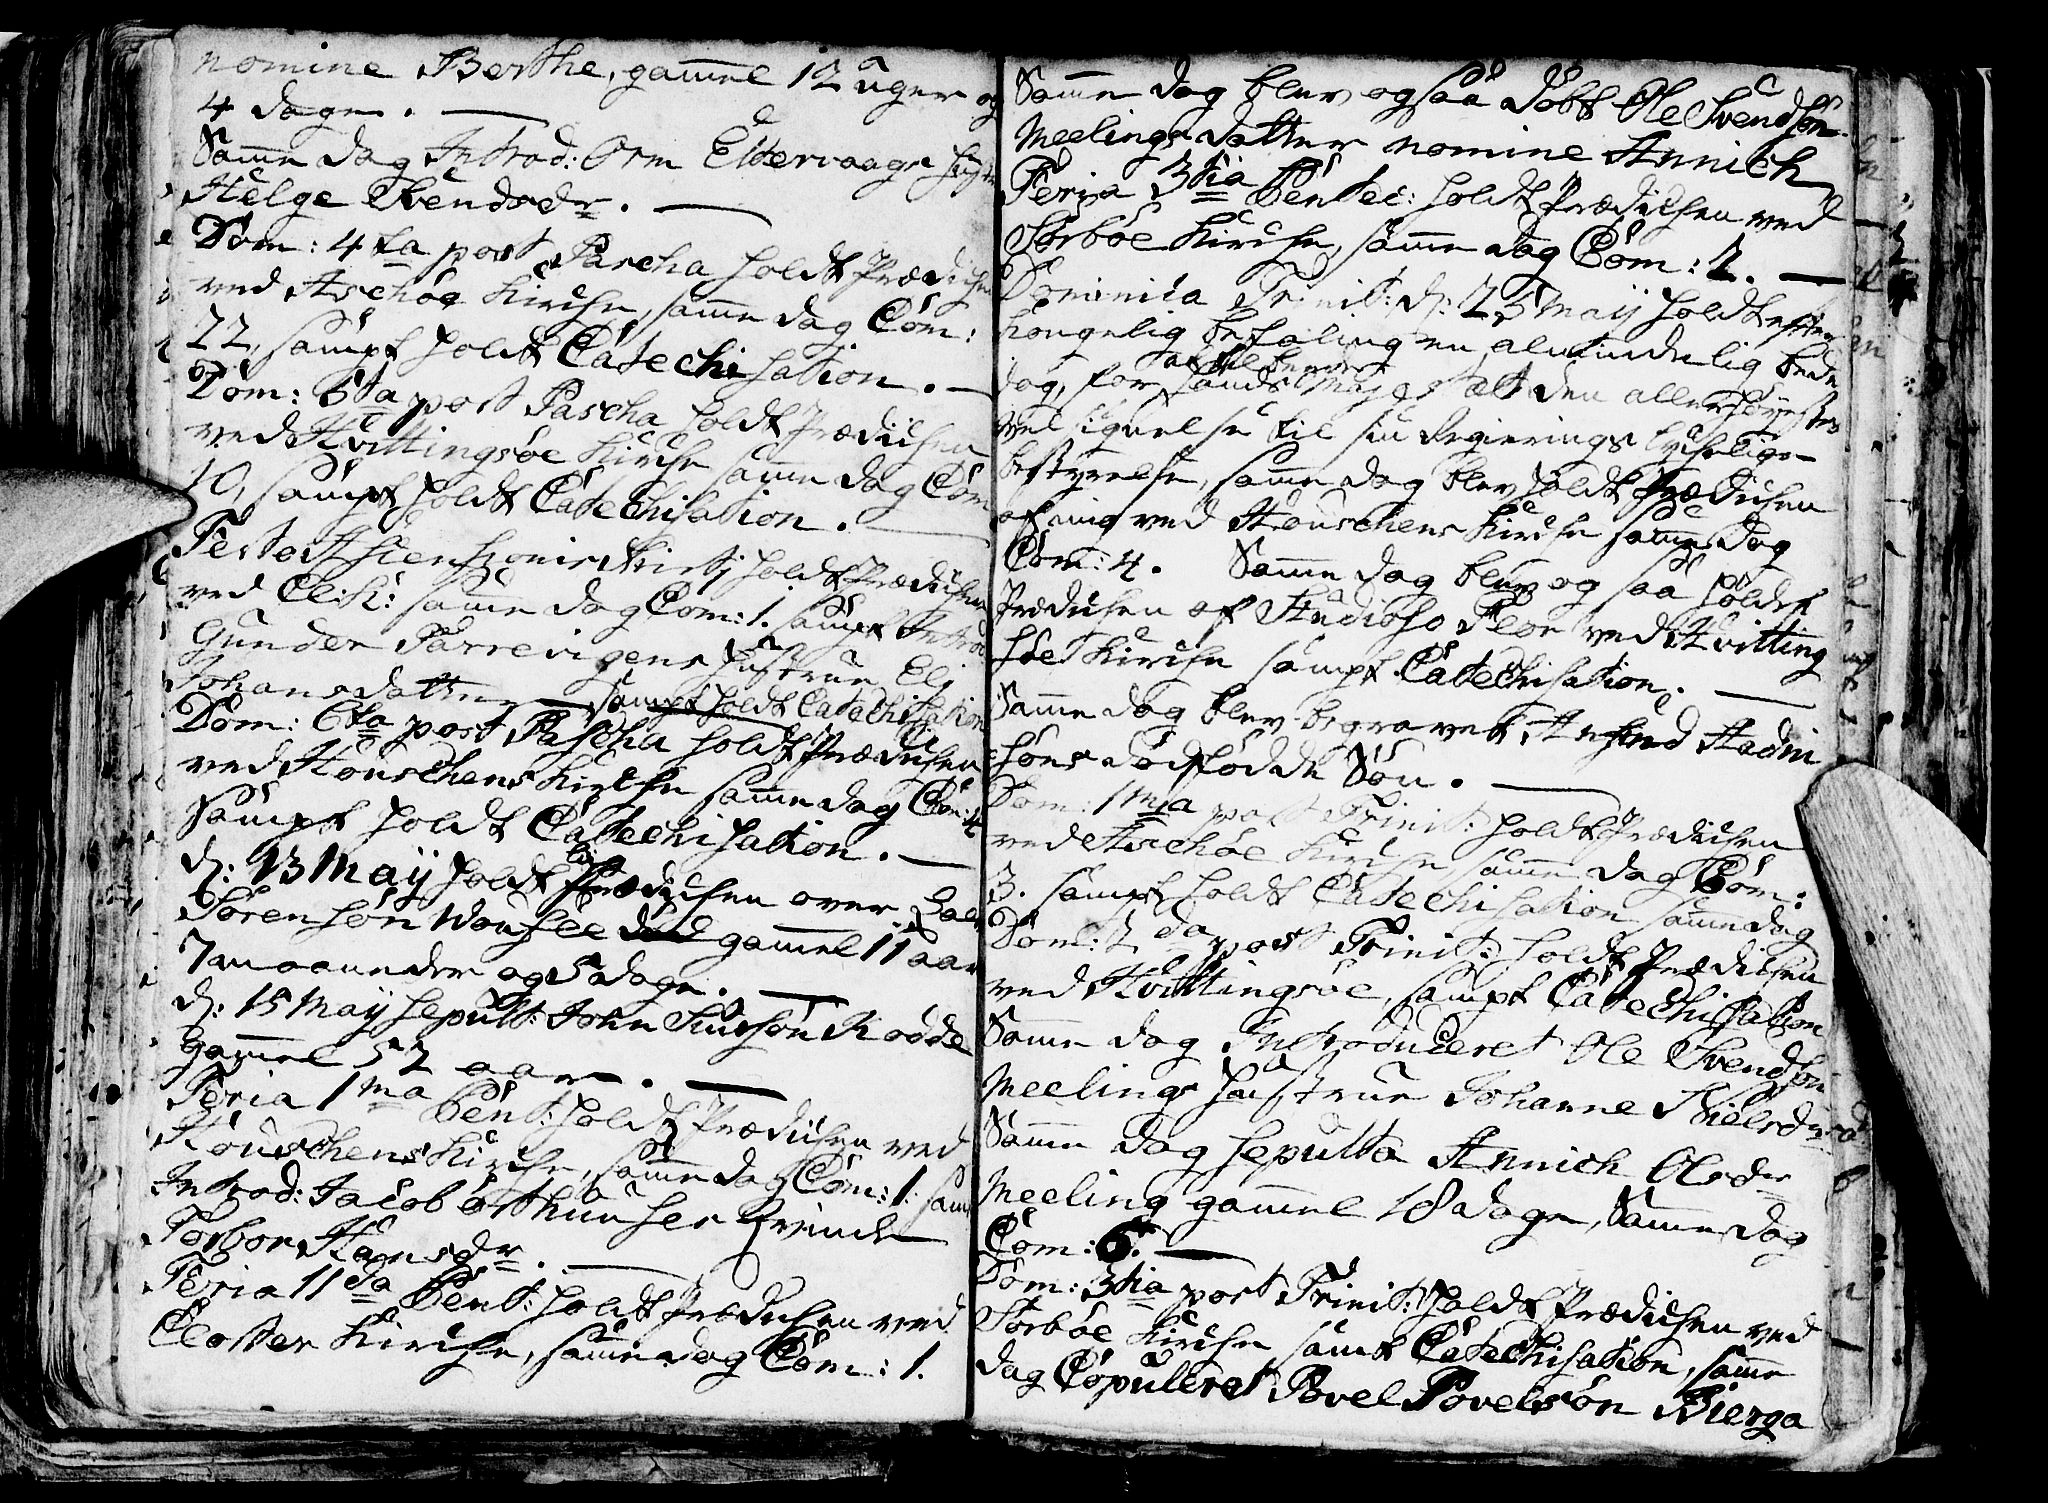 nomine Berthe, gammel 12 uger og
4 dage.
Samme dag Introd: Orm Eltervaags
Helge Svendsdr.
Dom: 4ta post Pascha holdt Prædichen
ved Aschöe Kirche, samme dag Com:
22, sampt holdt Catechisation.
Dom: 5ta post Pascha holdt Prædichen
ved Hvittingsöe Kirche samme dag Com
10, sampt holdt Catechisation.
Festo Ascensionis Christi holdt Prædichen
ved Cl: K: samme dag Com: 1. sampt Introd
Gunder Parrevigens Hustrue Eli
Johansdatter sampt holdt Catechisation
Dom: 6ta post Pascha holdt Prædichen
ved Houschens Kirche samme dag Com: 4
sampt holdt Catechisation.
d: 13 Maÿ holdt Prædichen over
Sörensön gammel 11 aar
7 maaneder og 5 dage.
d: 15 Maÿ sepult: John Rödde
gammel 52 aar.
Feria 1ma Pent: holdt Prædichen ved
Houschens Kirche, samme dag Com: 1. samt
Introd: Jacob Qvinde
Torbor Hansdr.
Feria 11da Pent: holdt Prædichen ved
Closter Kirche, samme dag Com: 1.
Samme dag blev og saa döbt Ole Svendsön
Meelings datter nomine Annich
Feria 3tia Pentec: holdt Prædichen ved
Sörböe Kirche, samme dag Com: 2.
Dominica Trinit: d: 25 Maÿ holdt efter
Kongelig befaling en almindelig bede
dag, for at den allerhöyeste
velsignelse til sin Regierings lychelige
bestyrelse, samme dag blev holdt Prædichen
af mig ved Houschens Kirche samme dag
Com: 4. Samme dag blev og saa holdt
Prædichen af Studioso Flor ved Hvitting
söe Kirche sampt Catechisation.
Samme dag blev begravet
söns dödfödde Sön.
Dom: 1ma post Trinit: holdt Prædichen
ved Aschöe Kirche samme dag Com:
3. sampt holdt Catechisation samme dag
Dom: 2da post Trinit: holdt Prædichen
ved Hvittingsöe, sampt Catechisation
Samme dag Introduceret Ole Svendsön
Meelings Hustrue Johanne Nielsdr
Samme dag sepulta Annich Olsdr
Meeling gammel 18 dage, Samme dag
Com: 6.
Dom: 3tia post Trinit: holdt Prædichen ved
Sörböe Kirche samt Catechisation, samme
dag Copuleret Povel Povelsön Bierga